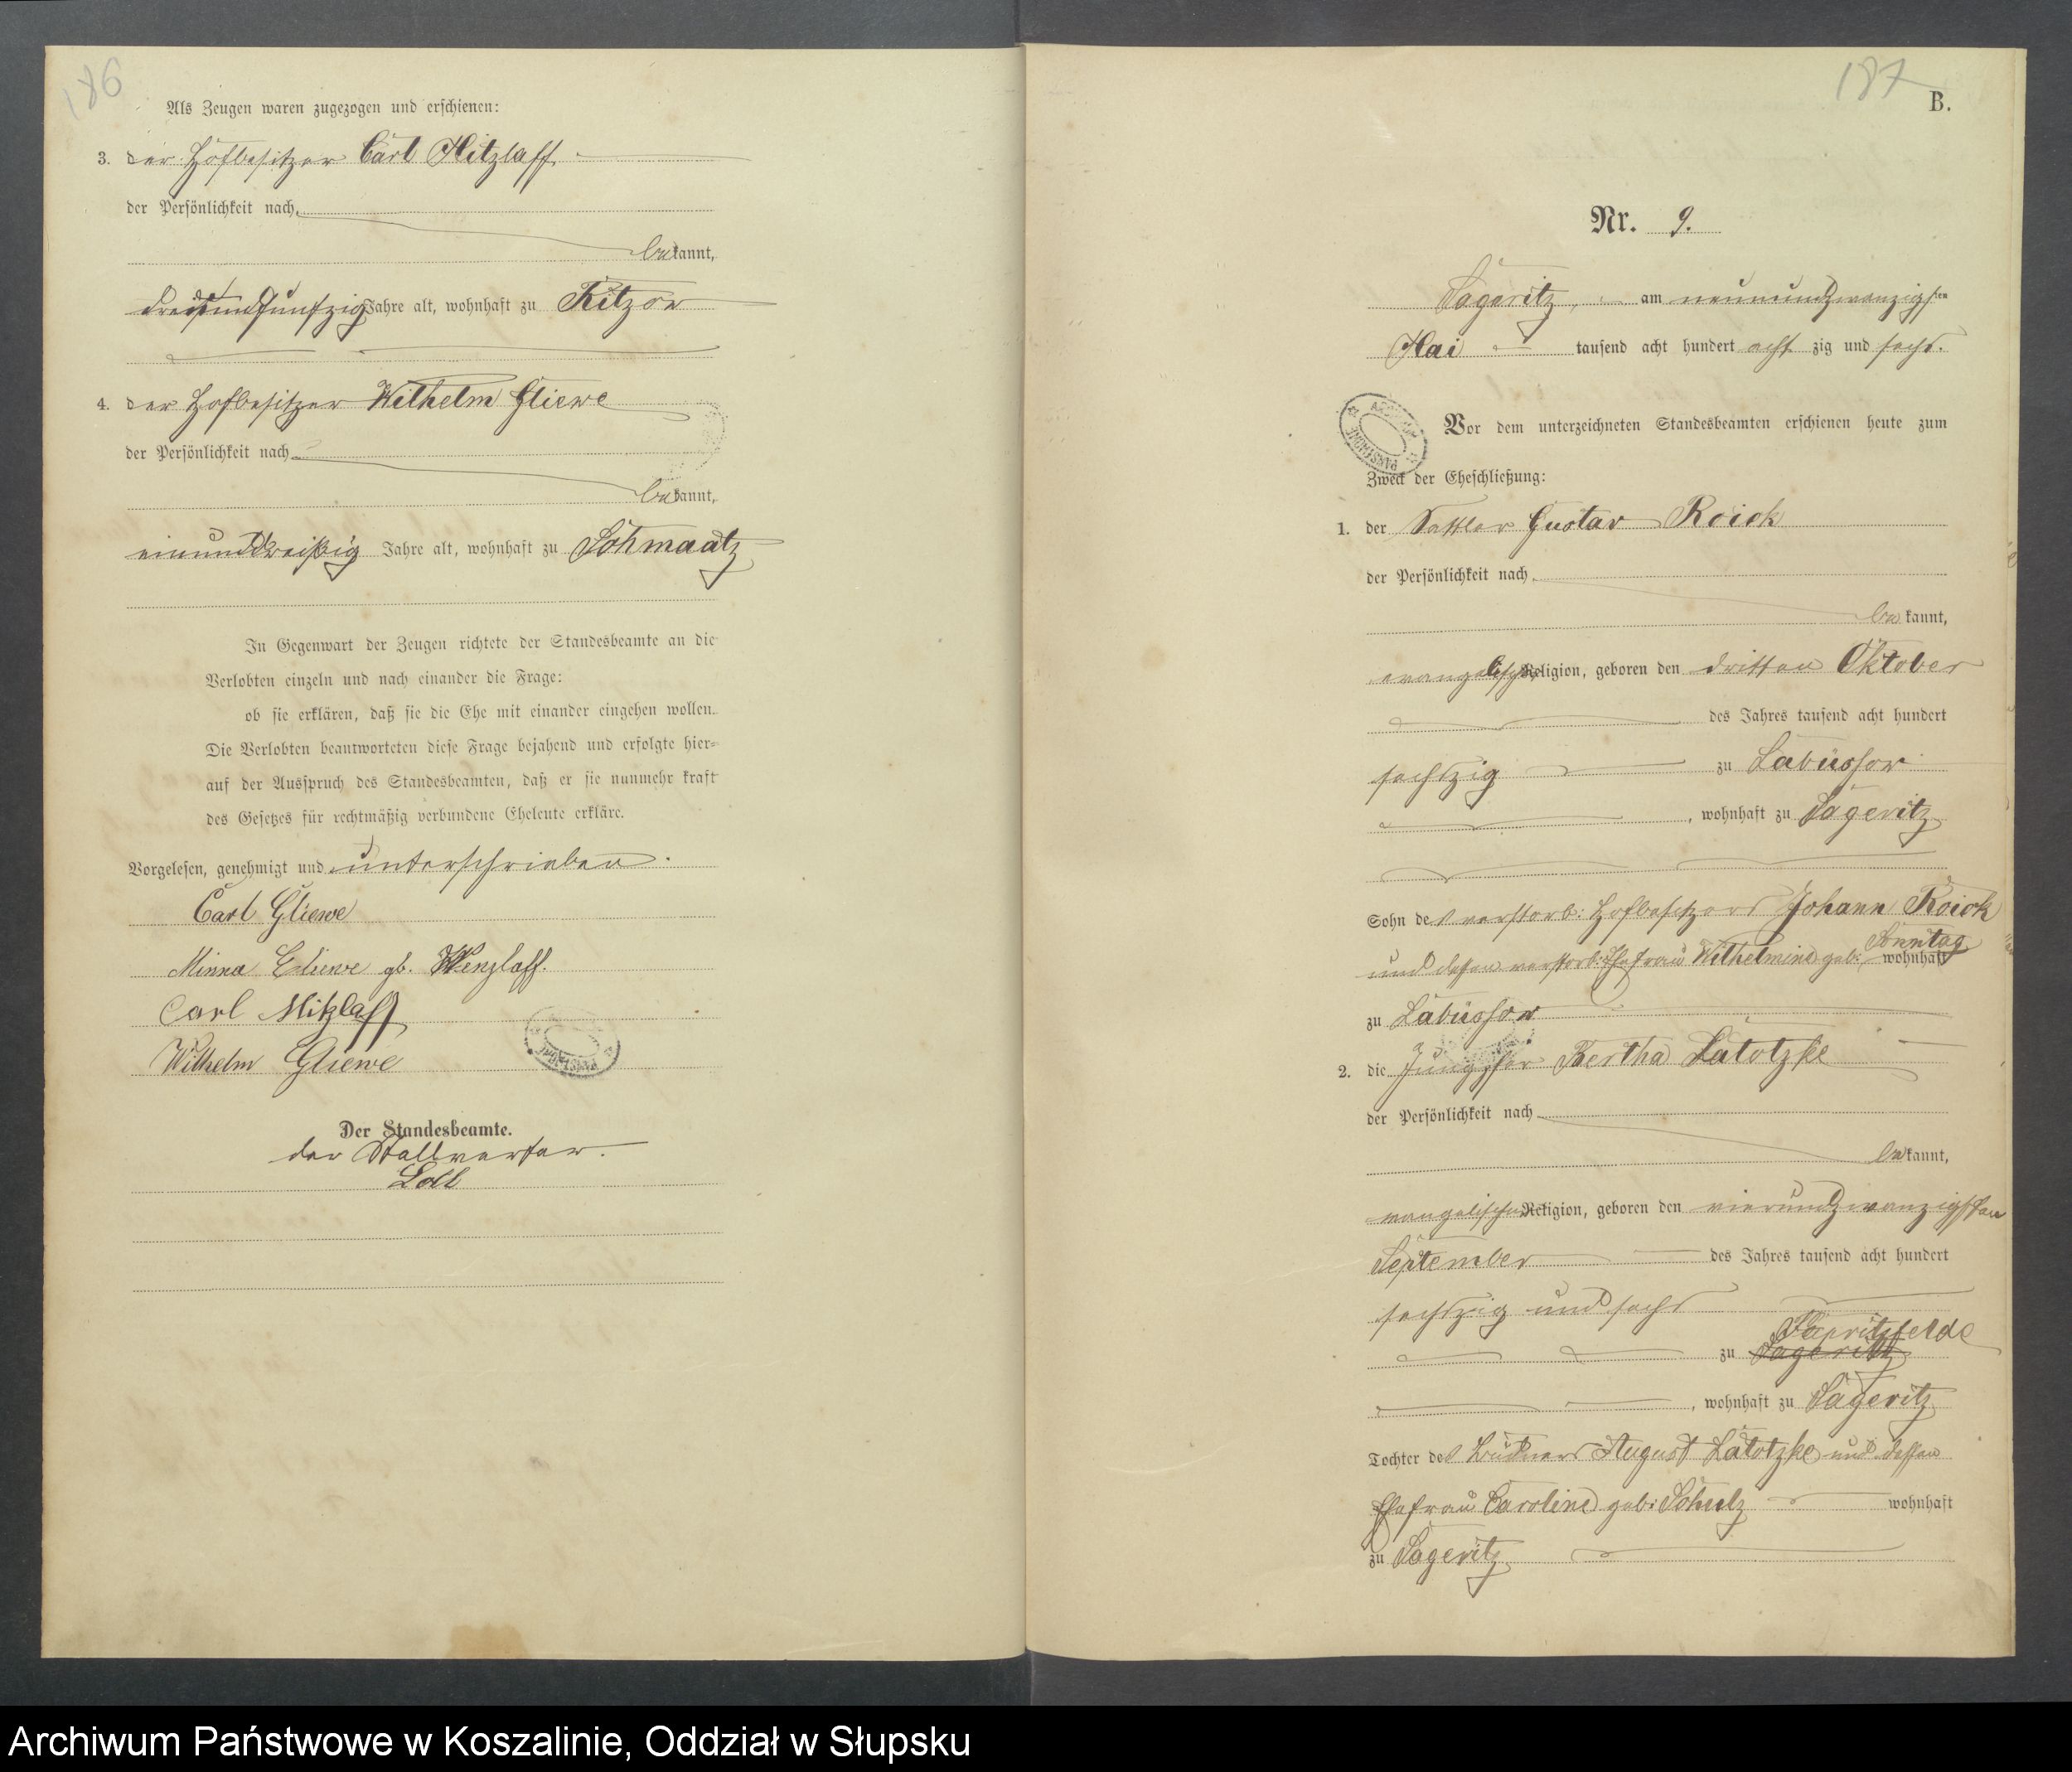 186
Als Zeugen waren zugezogen und erschienen:
3. der Hofbesitzer Carl Mitzlaff
der Persönlichkeit nach
bekannt,
dreiundfunfzig Jahre alt, wohnhaft zu Ritzow
4. der Hofbesitzer Wilhelm Gliewe
der Persönlichkeit nach
bekannt,
einunddreißig Jahre alt, wohnhaft zu Schmaatz
In Gegenwart der Zeugen richtete der Standesbeamte an die
Verlobten einzeln und nach einander die Frage:
ob sie erklären, daß sie die Ehe mit einander eingehen wollen.
Die Verlobten beantworteten diese Frage bejahend und erfolgte hier=
auf der Ausspruch des Standesbeamten, daß er sie nunmehr kraft
des Gesetzes für rechtmäßig verbundene Eheleute erkläre.
Vorgelesen, genehmigt und unterschrieben.
Carl Gliewe
Minna Gliewe gb. Wenzlaff.
Carl Mitzlaff
Wilhelm Gliewe
Der Standesbeamte.
der Stellverter.
187
B.
Nr. 9.
Sageritz, am neunundzwanzigsten
Mai tausend acht hundert acht zig und sechs.
Vor dem unterzeichneten Standesbeamten erschienen heute zum
Zweck der Eheschließung:
1. der Sattler Gustav Roick
der Persönlichkeit nach
bekannt,
evangelischer Religion, geboren den dritten Oktober
des Jahres tausend acht hundert
sechszig zu Labüssow
, wohnhaft zu Sageritz
Sohn des verstorb: Hofbesitzers Johann Roick
und dessen verstorb: Ehefrau Wilhelmine geb: Sonntag wohnhaft
zu Labüssow
2. die Jungfer Bertha Latotzke
der Persönlichkeit nach
bekannt,
evangelischer Religion, geboren den vierundzwanzigsten
September des Jahres tausend acht hundert
sechszig und sechs
zu Sageritz
, wohnhaft zu Sageritz
Tochter des Büdners August Latotzke und dessen
Ehefrau Caroline geb: Schulz wohnhaft
zu Sageritz
Archiwum Państwowe w Koszalinie, Oddział w Słupsku